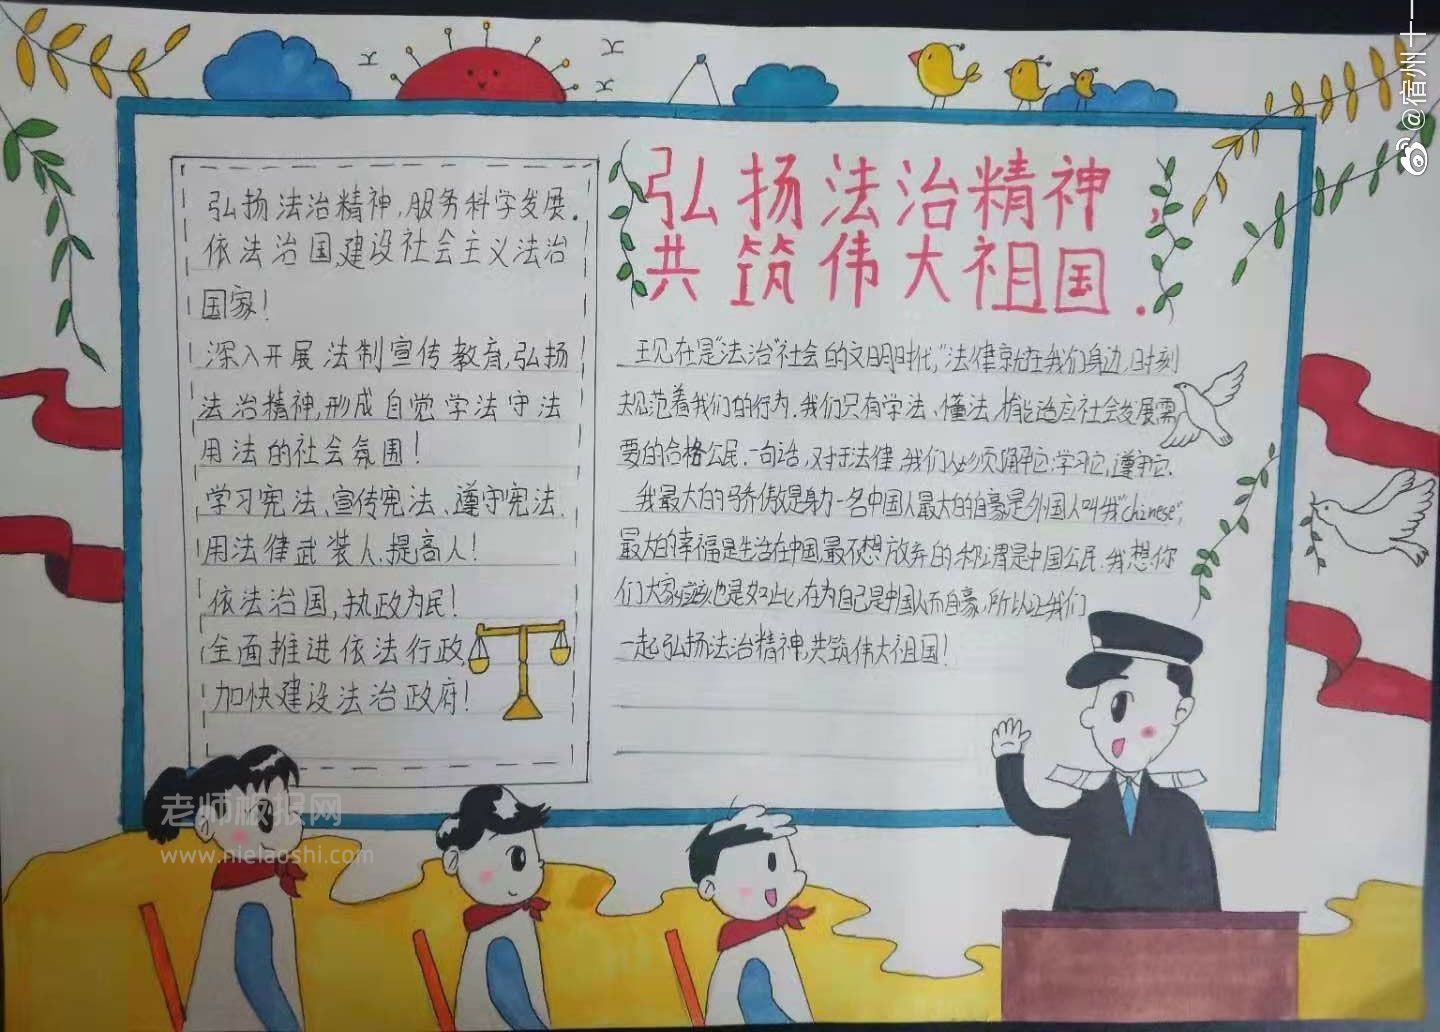 弘扬法治精神
共筑伟大祖国.
弘扬法治精神,服务科学发展.
依法治国,建设社会主义法治
国家!
深入开展法制宣传教育,弘扬
法治精神,形成自觉学法守法
用法的社会氛围!
学习宪法、宣传宪法、遵守宪法、
用法律武装人.提高人!
依法治国,执政为民!
全面推进依法行政,
加快建设法治政府!
现在是“法治”社会的文明时代,“法律就在我们身边,时刻
规范着我们的行为.我们只有学法、懂法,才能适应社会发展需
要的合格公民.一句话,对于法律,我们必须了解它,学习它,遵守它.
我最大的骄傲是身为一名中国人最大的自豪是外国人叫我“chinese”,
最大的幸福是生活在中国,最不想放弃的称谓是中国公民.我想你
们大家应该也是如此,在为自己是中国人而自豪,所以让我们
一起弘扬法治精神,共筑伟大祖国!
老师板报网
www.nielaoshi.com
@宿州十一